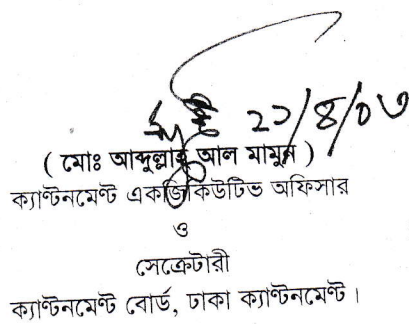 ২১/৪/০৩
( মোঃ আব্দুল্লাহ্ আল মামুন )
ক্যান্টনমেন্ট একজিকিউটিভ অফিসার
ও
সেক্রেটারী
ক্যান্টনমেন্ট বোর্ড, ঢাকা ক্যান্টনমেন্ট।